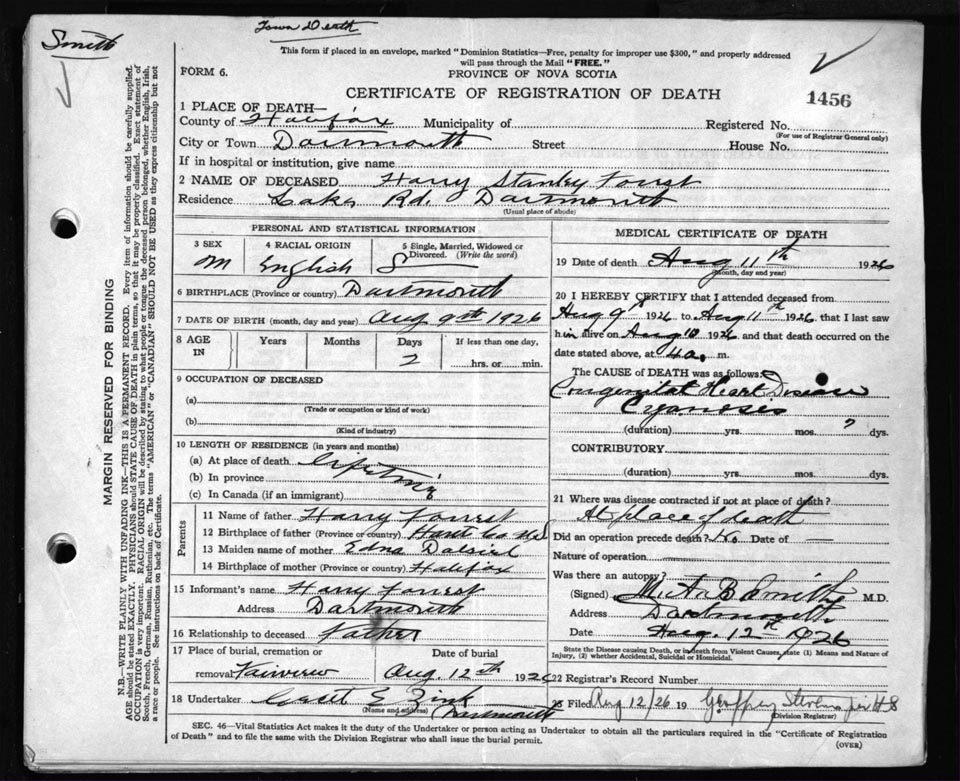 Smith
Town Death
This form if placed in an envelope, marked "Dominion Statistics—Free, penalty for improper use $300," and properly addressed
will pass through the Mail "FREE."
FORM 6.
PROVINCE OF NOVA SCOTIA
CERTIFICATE OF REGISTRATION OF DEATH
1456
1 PLACE OF DEATH—
County of Halifax Municipality of Registered No.
(For use of Registrar General only)
City or Town Dartmouth Street House No.
If in hospital or institution, give name
2 NAME OF DECEASED Harry Stanley Forrest
Residence Lake Rd. Dartmouth
(Usual place of abode)
PERSONAL AND STATISTICAL INFORMATION
3 SEX 4 RACIAL ORIGIN 5 Single, Married, Widowed or
Divorced. (Write the word)
M English S
6 BIRTHPLACE (Province or country) Dartmouth
7 DATE OF BIRTH (month, day and year) Aug 9th 1926
8 AGE IN Years Months Days If less than one day,
2 hrs. or min.
9 OCCUPATION OF DECEASED
(a)
(Trade or occupation or kind of work)
(b)
(Kind of industry)
10 LENGTH OF RESIDENCE (in years and months)
(a) At place of death lifetime
(b) In province
(c) In Canada (if an immigrant)
Parents
11 Name of father Harry Forrest
12 Birthplace of father (Province or country) Hant Co NS
13 Maiden name of mother Edna
14 Birthplace of mother (Province or country) Halifax
15 Informant's name Harry Forrest
Address Dartmouth
16 Relationship to deceased Father
17 Place of burial, cremation or Date of burial
removal Fairview Aug 12th 1926
18 Undertaker E Zink
(Name and address) Dartmouth
MEDICAL CERTIFICATE OF DEATH
19 Date of death Aug 11th 1926
(month, day and year)
20 I HEREBY CERTIFY that I attended deceased from
Aug 9th 1926 to Aug 11th 1926 that I last saw
him alive on Aug 10 1926 and that death occurred on
date stated above, at 4 a. m.
The CAUSE OF DEATH was as follows:
Congenital Heart Disease
Cyanoses
(duration) yrs. mos. 2 dys.
CONTRIBUTORY
(duration) yrs. mos. dys.
21 Where was disease contracted if not at place of death?
At place of death
Did an operation precede death? No Date of —
Nature of operation
Was there an autopsy?
(Signed) B Smith M.D.
Address Dartmouth
Date Aug. 12th 1926
State the Disease causing Death, or in death from Violent Causes, state (1) Means and Nature of
Injury, (2) whether Accidental, Suicidal or Homicidal.
22 Registrar's Record Number
23 Filed Aug 12/26 19 Geoffrey Sterling
Division Registrar)
SEC. 46—Vital Statistics Act makes it the duty of the Undertaker or person acting as Undertaker to obtain all the particulars required in the "Certificate of Registration
of Death" and to file the same with the Division Registrar who shall issue the burial permit.
(OVER)
MARGIN RESERVED FOR BINDING
N.B.—WRITE PLAINLY WITH UNFADING INK—THIS IS A PERMANENT RECORD. Every item of information should be carefully supplied.
AGE should be stated EXACTLY. PHYSICIANS should STATE CAUSE OF DEATH in plain terms, so that it may be properly classified. Exact statement of
OCCUPATION is very important. RACIAL ORIGIN will be described by stating to what people or tongue the deceased person belonged, whether English, Irish,
Scotch, French, German, Russian, Ruthenian, etc. The terms "AMERICAN" or "CANADIAN" SHOULD NOT BE USED as they express citizenship but not
a race or people. See instructions on back of Certificate.